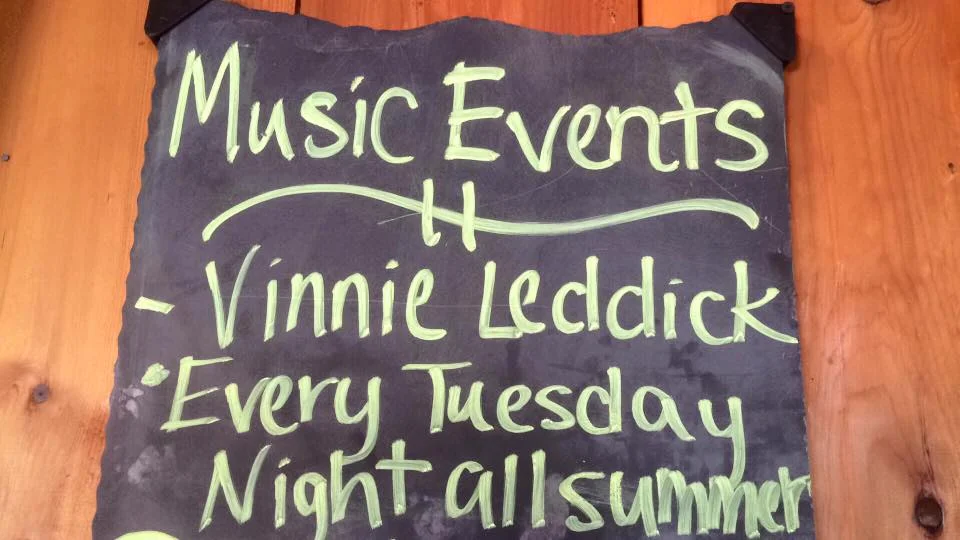 Music Events
- Vinnie Leddick
• Every Tuesday
Night all summer